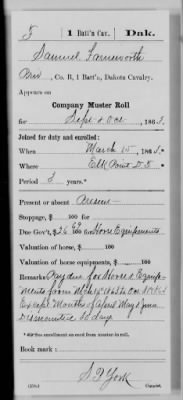 F | 1 Batt'n Cav. | Dak.
Samuel Farnsworth
Priv, Co. B, 1 Batt'n, Dakota Cavalry.
Appears on
Company Muster Roll
for Sept & Oct, 1863.
Joined for duty and enrolled:
When March 15, 186
Where Elk Point D.T.
Period 3 years.*
Present or absent Present
Stoppage, $ 100 for
Due Gov't, $26 100 for Horse Equipments
Valuation of horse, $ 100
Valuation of horse equipments, $ 100
Remarks: Pay due for Horse & Equip-
ments from
Except Months of April May & June
Dismounted 30 days
* See enrollment on card from muster-in roll.
Book mark:
S. P. York
Copyist.